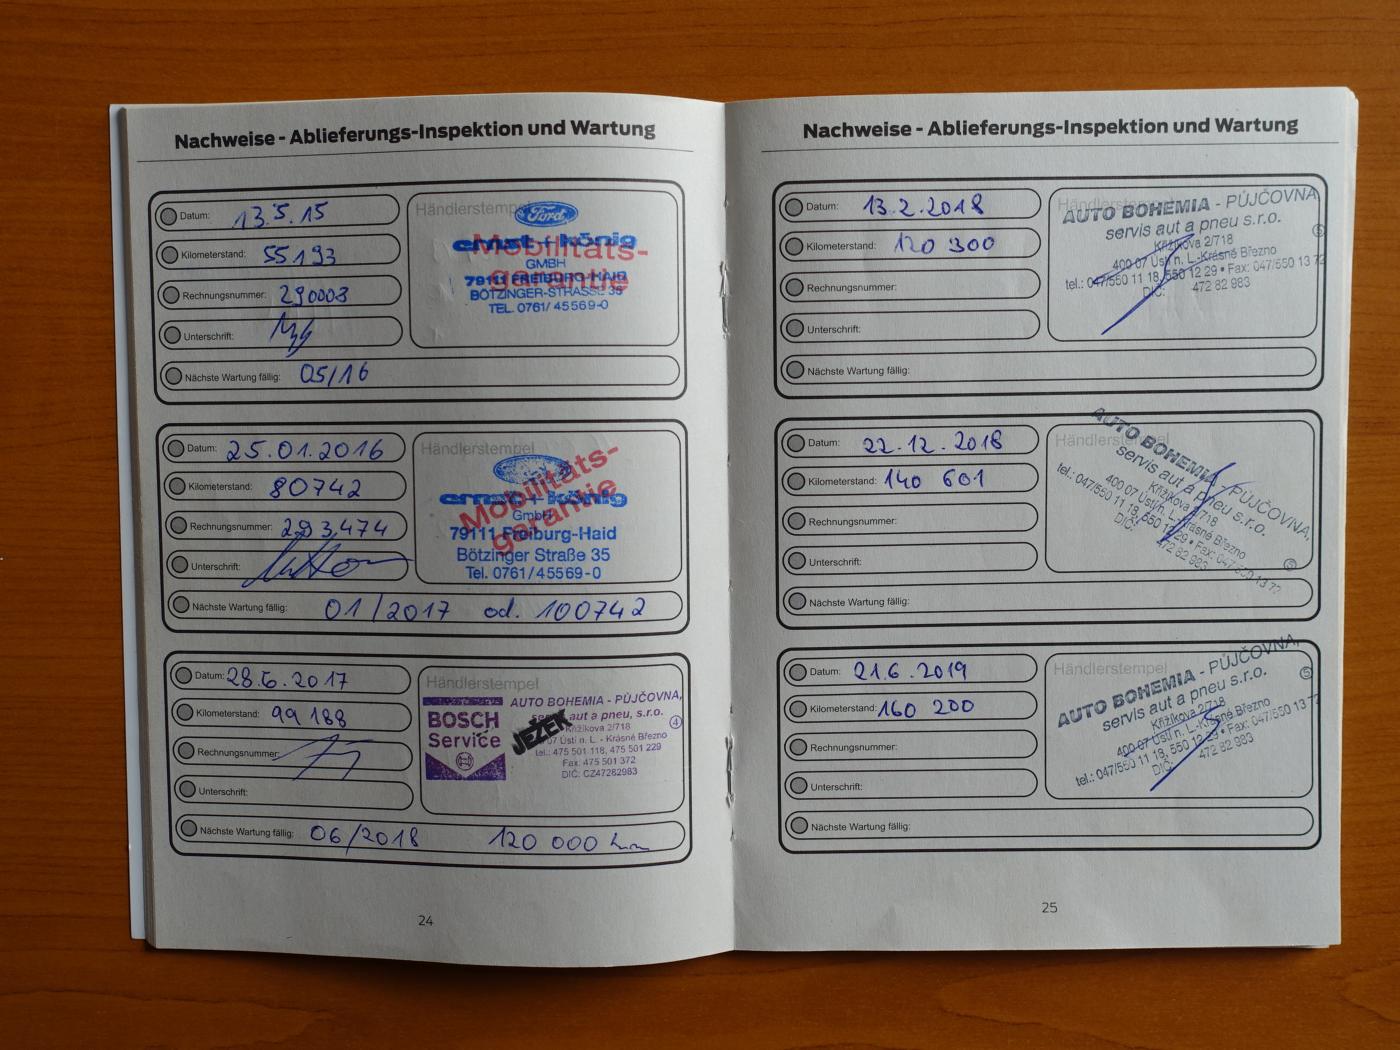 Nachweise - Ablieferungs-Inspektion und Wartung
Datum: 13.5.15
Kilometerstand: 55193
Rechnungsnummer: 290003
Unterschrift:
Nächste Wartung fällig: 05/16
Händlerstempel
Ford
ernst + könig
GMBH
79111 FREIBURG-HAID
BÖTZINGER-STRASSE 35
TEL. 0761/45569-0
Mobilitäts-
garantie
Datum: 25.01.2016
Kilometerstand: 80742
Rechnungsnummer: 293474
Unterschrift:
Nächste Wartung fällig: 01/2017 od. 100742
Händlerstempel
ernst + könig
GmbH
79111 Freiburg-Haid
Bötzinger Straße 35
Tel. 0761/45569-0
Mobilitäts-
garantie
Datum: 28.6.2017
Kilometerstand: 99 188
Rechnungsnummer:
Unterschrift:
Nächste Wartung fällig: 06/2018 120 000 km
Händlerstempel
BOSCH
Service
AUTO BOHEMIA - PŮJČOVNA,
aut a pneu, s.r.o.
Křižíkova 2/718
07 Ústí n. L. - Krásné Březno
tel.: 475 501 118, 475 501 229
Fax: 475 501 372
DIČ: CZ47282983
4
JEŽEK
24
Nachweise - Ablieferungs-Inspektion und Wartung
Datum: 13.2.2018
Kilometerstand: 120 300
Rechnungsnummer:
Unterschrift:
Nächste Wartung fällig:
Händlerstempel
AUTO BOHEMIA - PŮJČOVNA,
servis aut a pneu s.r.o.
Křižíkova 2/718
400 07 Ústí n. L.-Krásné Březno
tel.: 047/550 11 18, 550 12 29 • Fax: 047/550 13 72
DIČ: 472 82 983
5
Datum: 22.12.2018
Kilometerstand: 140 601
Rechnungsnummer:
Unterschrift:
Nächste Wartung fällig:
Händlerstempel
AUTO BOHEMIA - PŮJČOVNA,
servis aut a pneu s.r.o.
Křižíkova 2/718
400 07 Ústí n. L.-Krásné Březno
tel.: 047/550 11 18, 550 12 29 • Fax: 047/550 13 72
DIČ: 472 82 983
5
Datum: 21.6.2019
Kilometerstand: 160 200
Rechnungsnummer:
Unterschrift:
Nächste Wartung fällig:
Händlerstempel
AUTO BOHEMIA - PŮJČOVNA,
servis aut a pneu s.r.o.
Křižíkova 2/718
400 07 Ústí n. L.-Krásné Březno
tel.: 047/550 11 18, 550 12 29 • Fax: 047/550 13 72
DIČ: 472 82 983
5
25